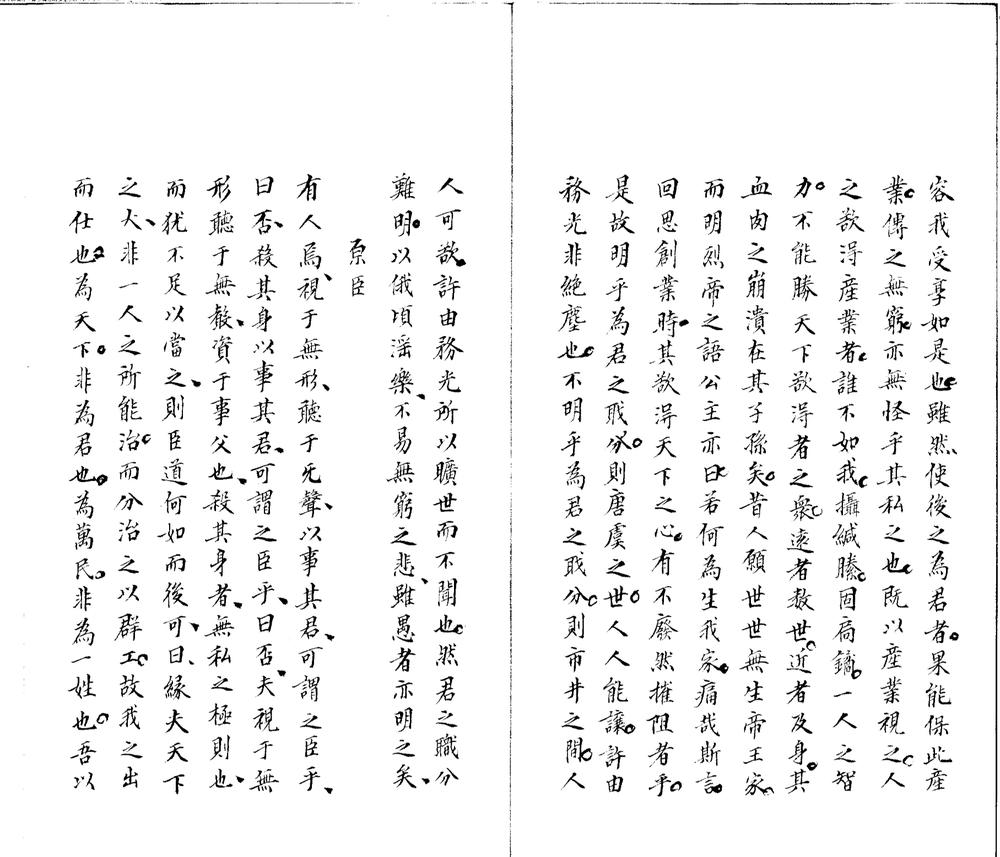 容我受享如是也。雖然、使後之為君者。果能保此產
業。傳之無窮。亦無怪乎其私之也。既以產業視之。人
之欲淂產業者。誰不如我。攝緘縢。固扃鐍。一人之智
力。不能勝天下欲淂者之衆。遠者数世。近者及身。其
血肉之崩潰在其子孫矣。昔人願世世無生帝王家。
而明烈帝之語公主亦曰。若何為生我家。痛哉斯言。
回思創業時。其欲淂天下之心。有不廢然摧阻者乎。
是故明乎為君之戝分。則唐虞之世。人人能讓。許由
務光非絶塵也。不明乎為君之戝分。則市井之間。人
人可欲。許由務光所以曠世而不聞也。然君之職分
難明。以俄頃滛樂、不易無窮之悲、雖愚者亦明之矣、
原臣
有人焉、視于無形、聽于无聲、以事其君、可謂之臣乎、
曰否、殺其身以事其君、可謂之臣乎、曰否、夫視于無
形聽于無聲、資于事父也、殺其身者、無私之極則也、
而犹不足以當之、則臣道何如而後可、曰、緣夫天下
之大、非一人之所能治。而分治之以群工。故我之出
而仕也。為天下。非為君也。為萬民。非為一姓也。吾以